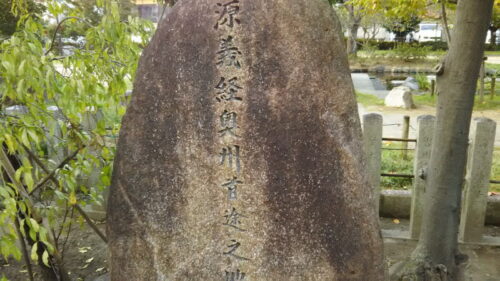 源義経奥州首途之地